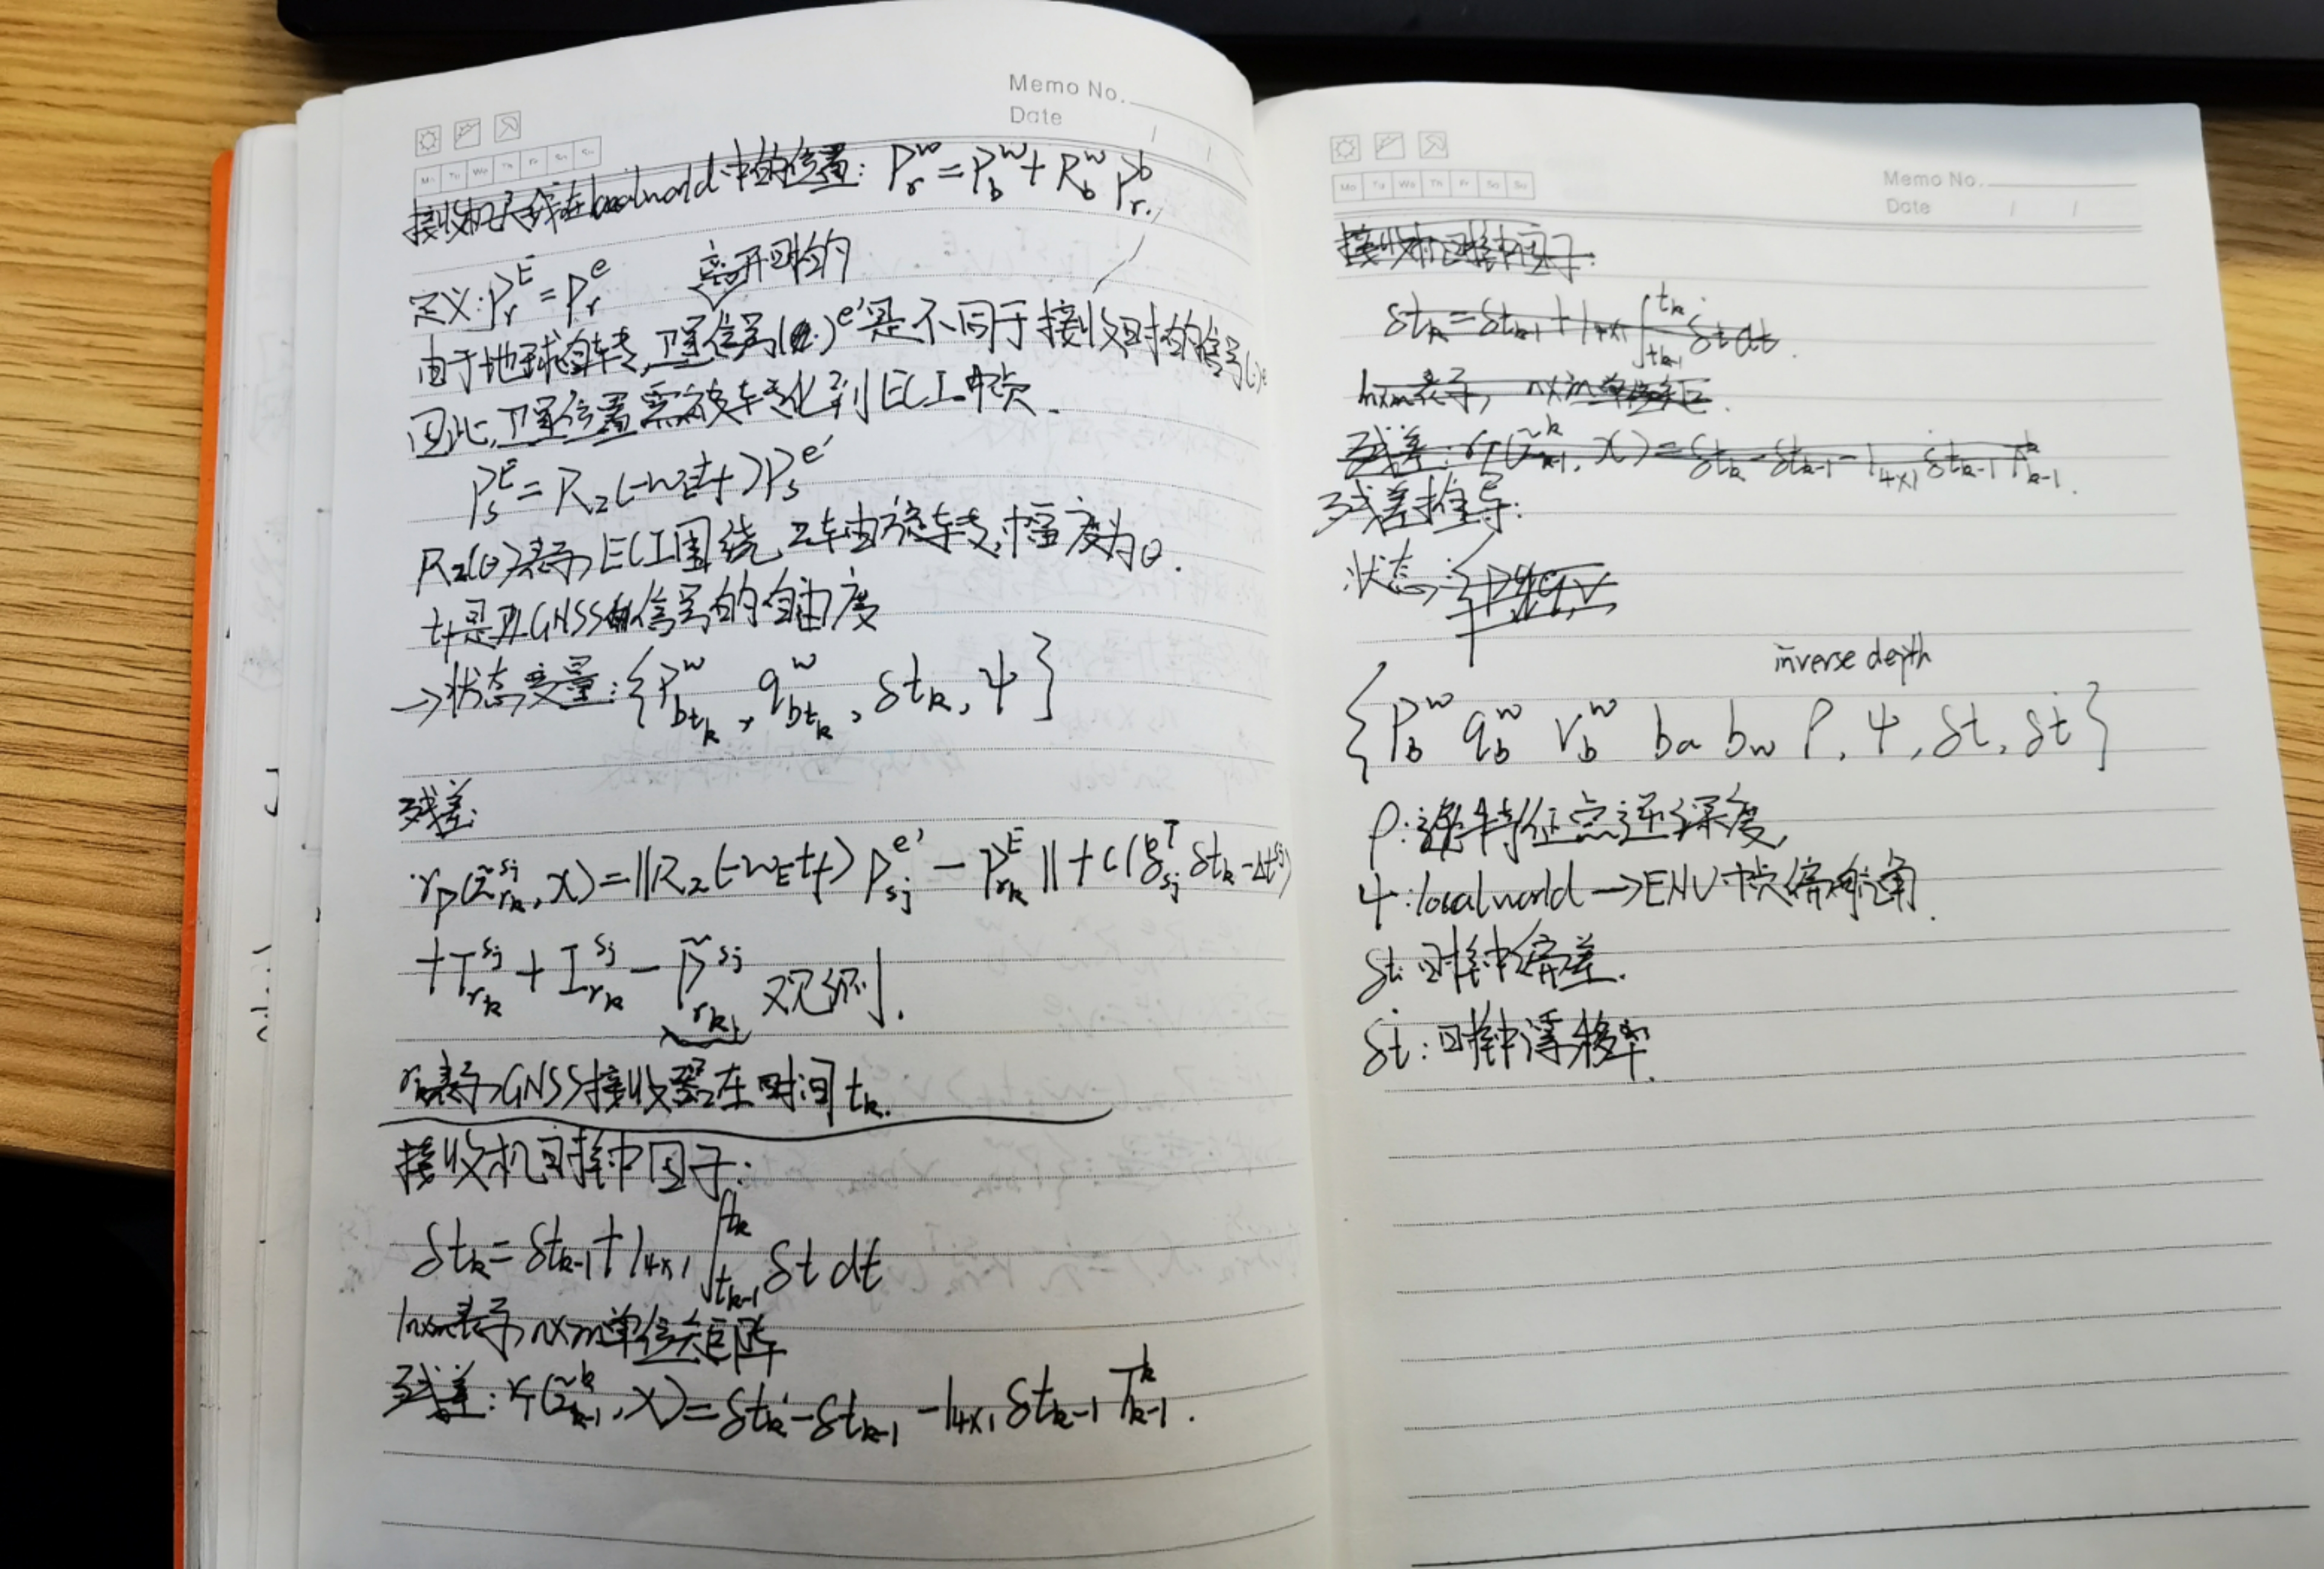 Memo No.
Date / /
Mo Tu We Th Fr Sa Su
接收机天线在local world中的位置: P_r^w = P_b^w + R_b^w P_r^b.
定义: P_r^E = P_r^e
离开时的
由于地球自转,卫星信号(·)^e'是不同于接收时的信号(·)^e
因此,卫星位置需被转化到ECI中帧.
P_s^E = R_z(-w_E t_f) P_s^e'
R_z(θ)表示ECI围绕z轴旋转,幅度为θ.
t_f是从GNSS信号的自由度
→状态变量: {P_{bt_k}^w, q_{bt_k}^w, δt_k, ψ}
残差:
r_p(z̃_{r_k}^{s_j}, χ) = ||R_z(-w_E t_f) P_{s_j}^{e'} - P_{r_k}^E|| + c(g_{s_j}^T δt_k - Δt^{s_j})
+ T_{r_k}^{s_j} + I_{r_k}^{s_j} - P̃_{r_k}^{s_j} 观测.
r_k表示GNSS接收器在时间t_k.
接收机时钟因子:
δt_k = δt_{k-1} + 1_{4×1} ∫_{t_{k-1}}^{t_k} δt dt
1_{n×m}表示n×m单位矩阵
残差: r_T(z̃_{k-1}^k, χ) = δt_k - δt_{k-1} - 1_{4×1} δt_{k-1} T_{k-1}^k.
Memo No.
Date / /
Mo Tu We Th Fr Sa Su
接收机时钟因子:
δt_k = δt_{k-1} + 1_{4×1} ∫_{t_{k-1}}^{t_k} δṫ dt.
1_{n×m}表示, n×m单位矩
残差: r_T(z̃_{k-1}^k, χ) = δt_k - δt_{k-1} - 1_{4×1} δṫ_{k-1} T_{k-1}^k.
残差推导:
状态: {
inverse depth
{P_b^w q_b^w v_b^w b_a b_w ρ, ψ, δt, δṫ}
ρ: 特征点逆深度,
ψ: local world → ENU中帧偏航角.
δt: 时钟偏差.
δṫ: 时钟漂移率.